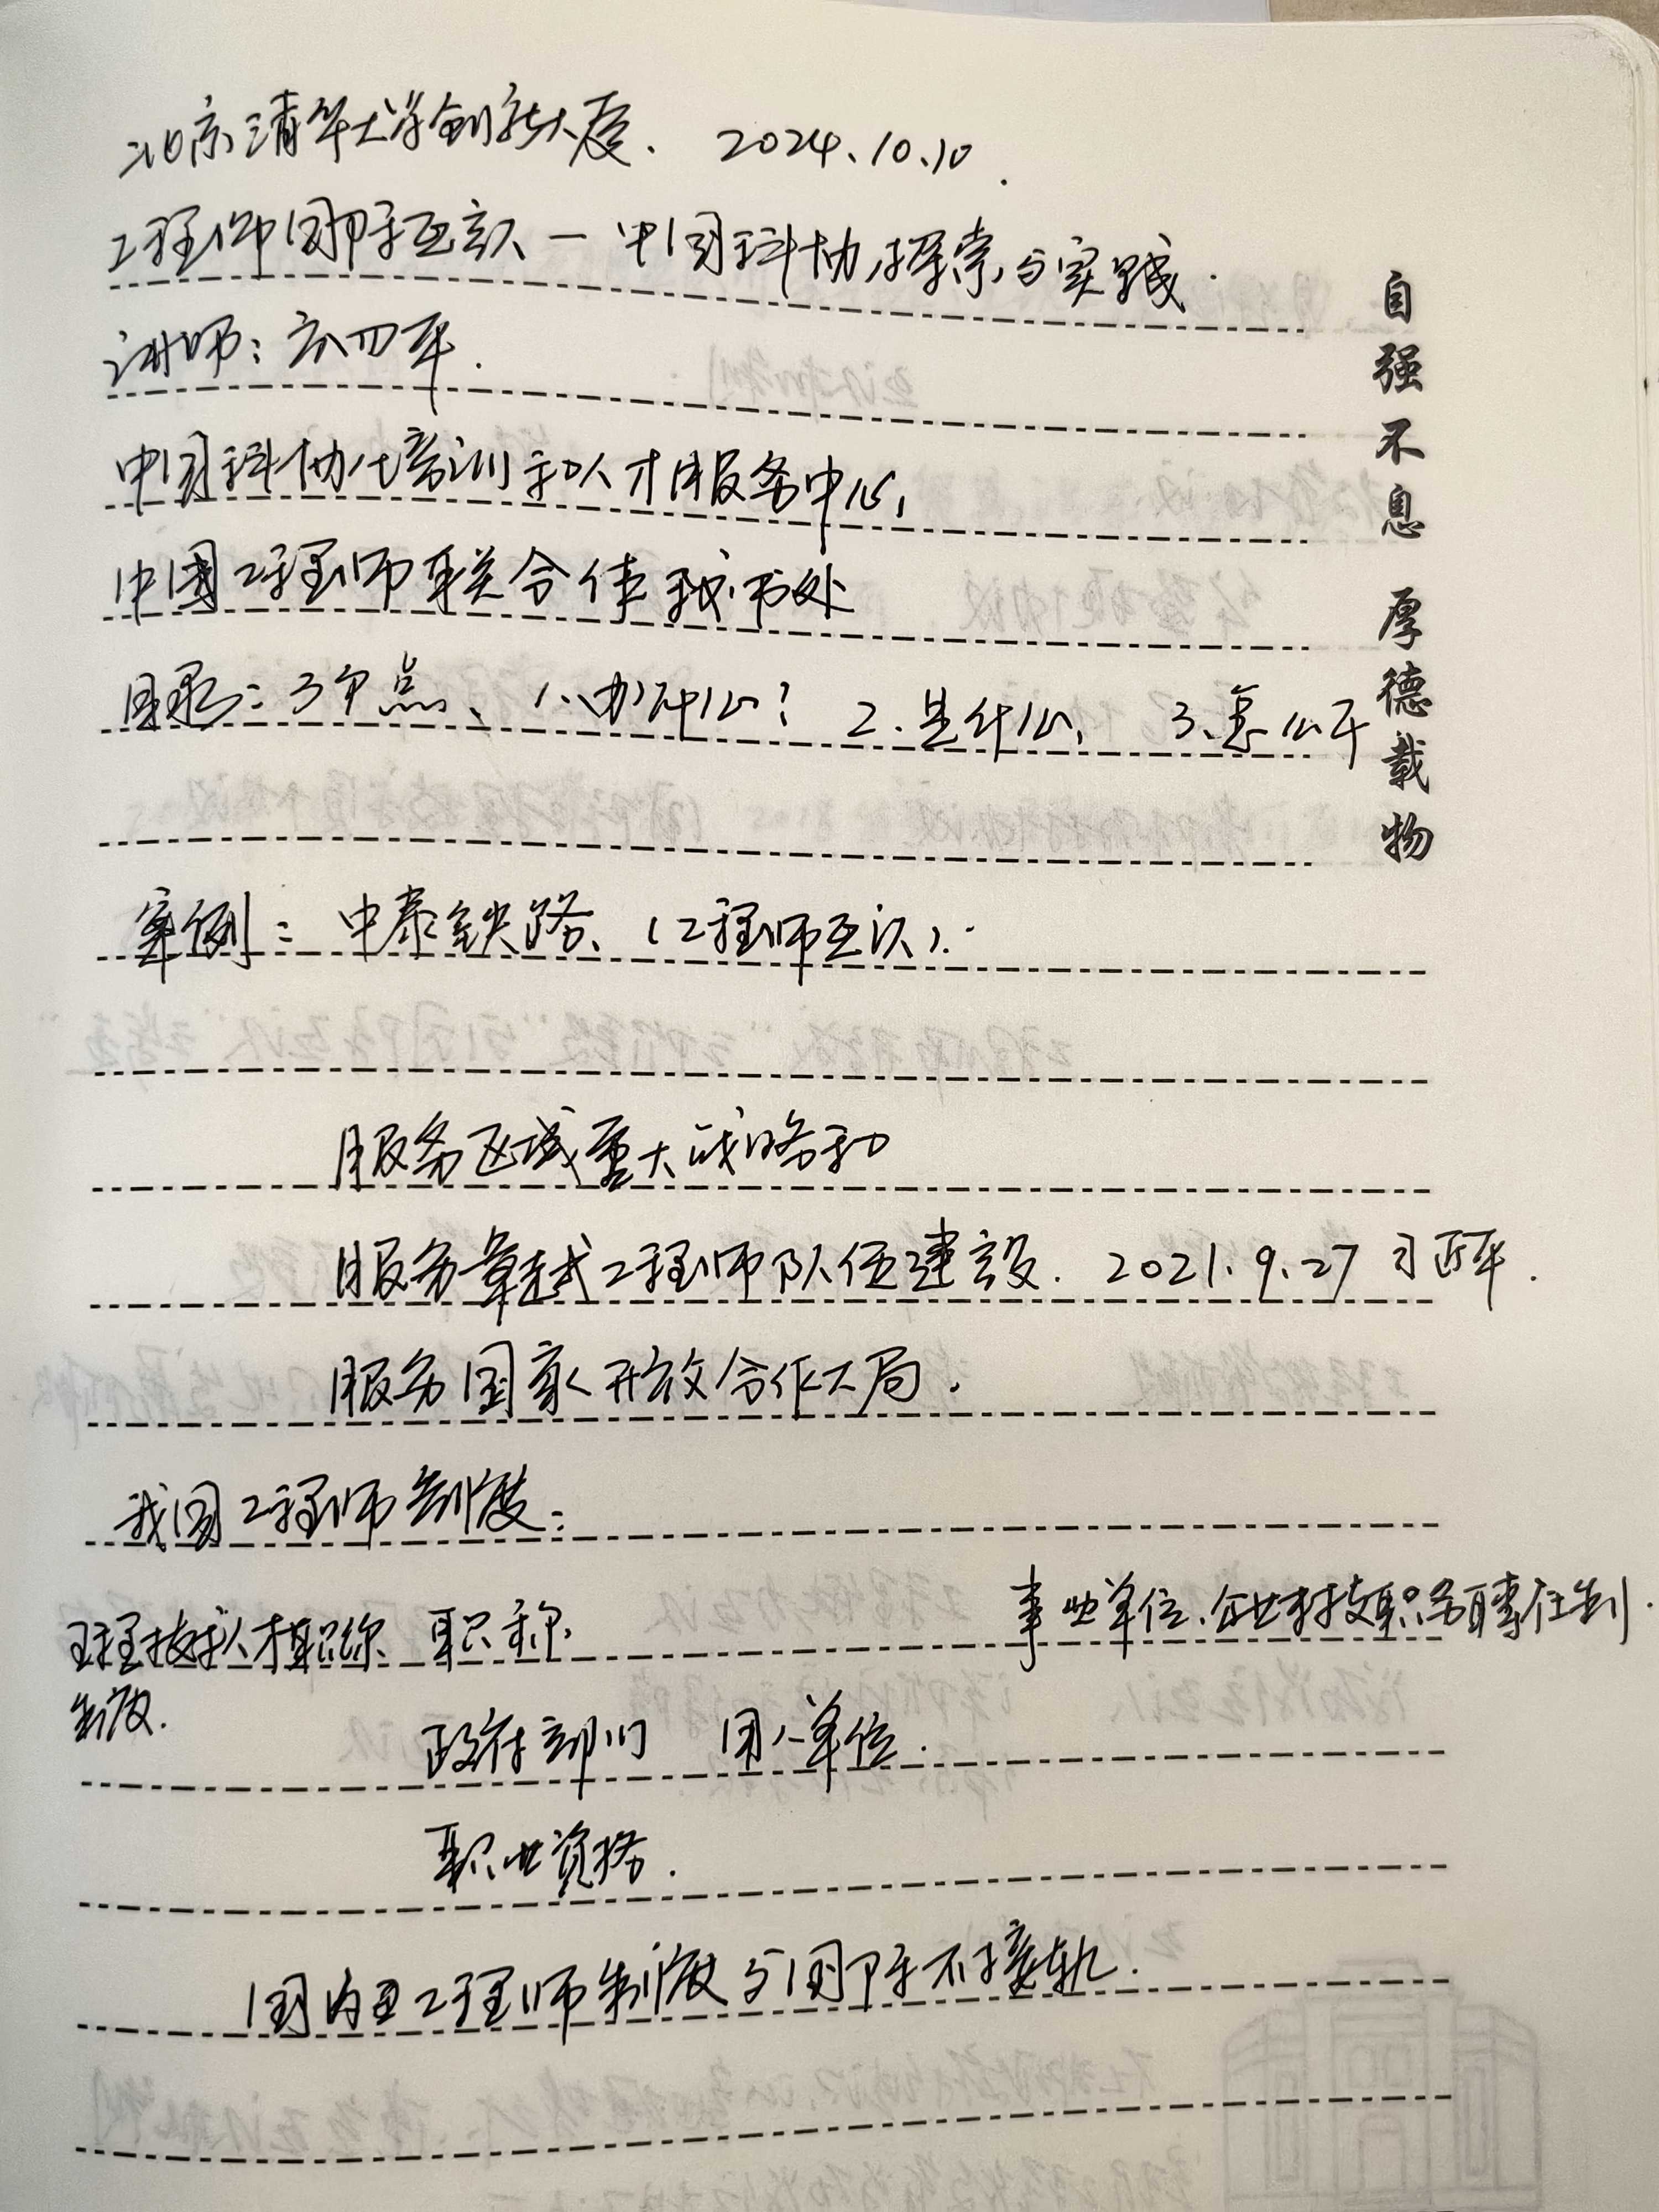 北京清华大学创新大厦. 2024.10.10.
工程师国际互认—中国科协探索与实践.
讲师: 四平.
中国科协培训和人才服务中心,
中国工程师联合体秘书处
目录: 3个点、1、为什么? 2.是什么, 3、怎么干
案例: 中泰铁路、(工程师互认).
服务区域重大战略和
服务卓越工程师队伍建设. 2021.9.27 习近平.
服务国家开放合作大局.
我国工程师制度:
工程技术人才职称 职称 事业单位、企业 技职务聘任制.
制度.
政府部门 用人单位.
职业资格.
国内 工程师制度与国际不接轨.
自强不息 厚德载物